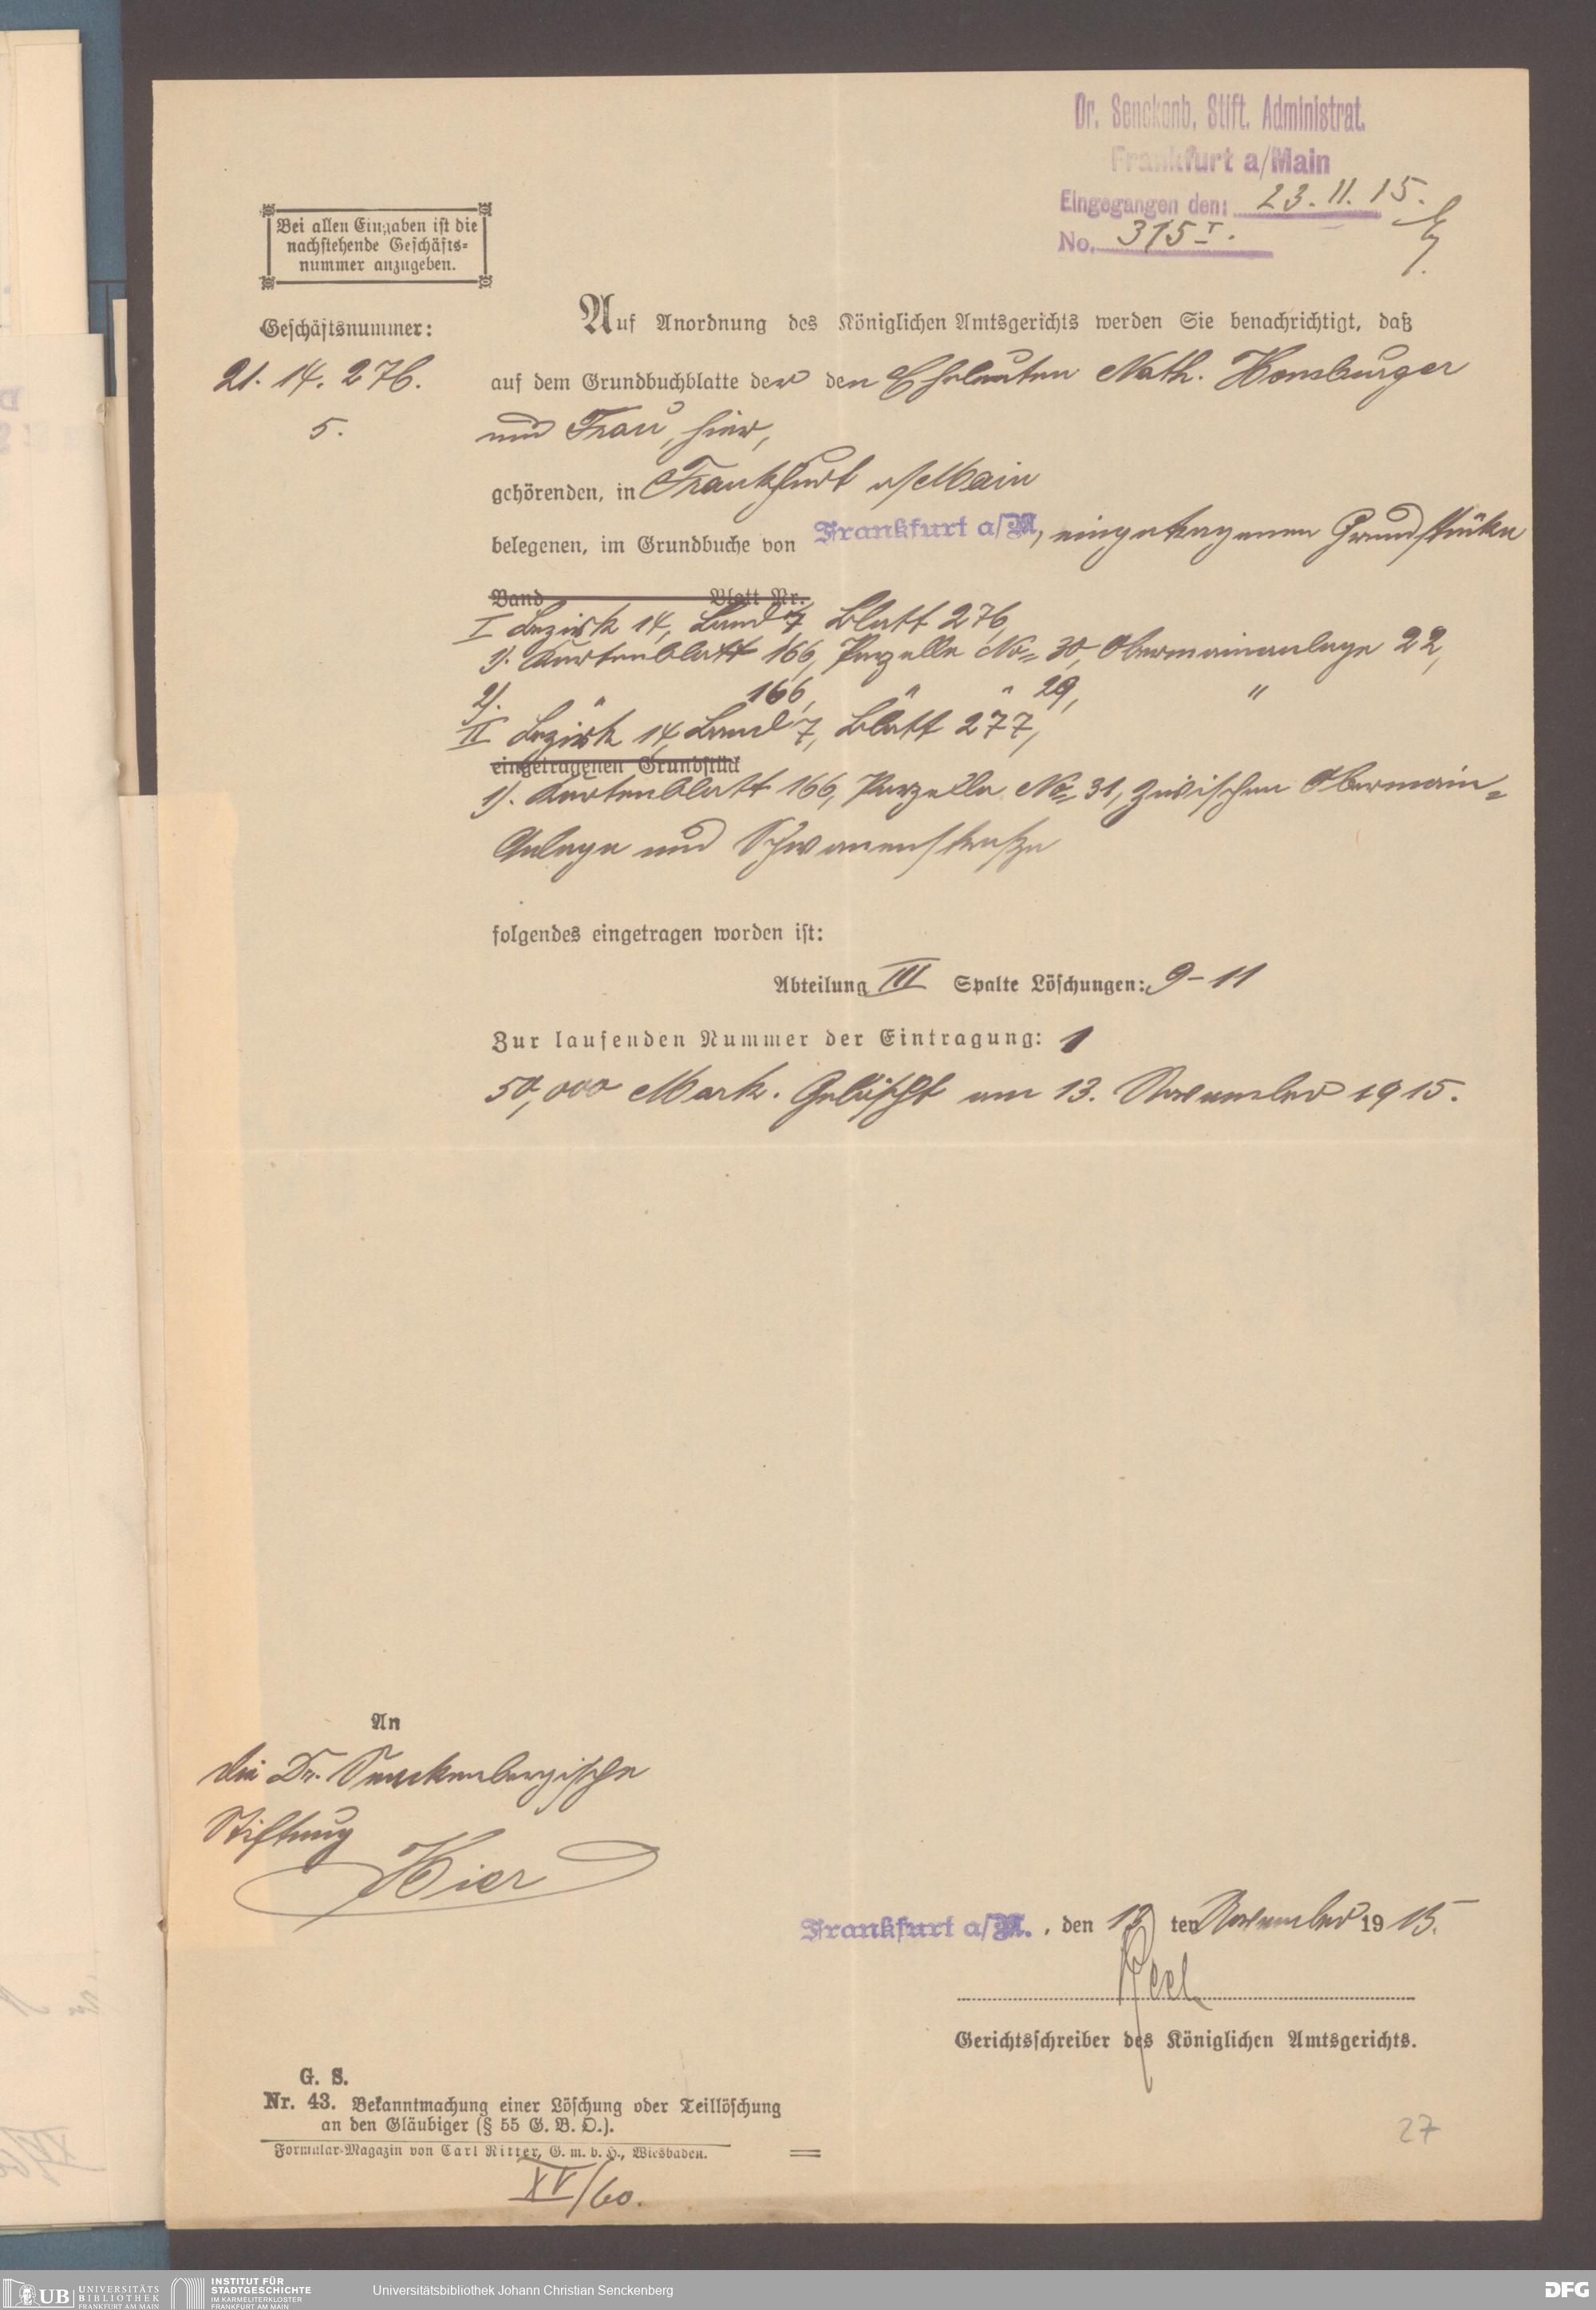 Dr. Senckenb. Stift. Administrat.
Frankfurt a/Main
Eingegangen den: 23.11.15.
No. 315 I.
Bei allen Eingaben ist die
nachstehende Geschäfts-
nummer anzugeben.
Geschäftsnummer:
21. 14. 276.
5.
Auf Anordnung des Königlichen Amtsgerichts werden Sie benachrichtigt, daß
auf dem Grundbuchblatte der den Eheleuten Nath. Homburger
und Frau, hier,
gehörenden, in Frankfurt a/Main
belegenen, im Grundbuche von Frankfurt a/M, eingetragenen Grundstücken
Band Blatt Nr.
I Bezirk 14, Band 7, Blatt 276,
1). Kartenblatt 166, Parzelle No 30, Obermainanlage 22,
2). " 166, " " 29, "
II Bezirk 14, Band 7, Blatt 277,
eingetragenen Grundstück
1). Kartenblatt 166, Parzelle No 31, zwischen Obermain-
Anlage und Schwanenstraße
folgendes eingetragen worden ist:
Abteilung III Spalte Löschungen: 9-11
Zur laufenden Nummer der Eintragung: 1
50,000 Mark. Gelöscht am 13. November 1915.
An
die Dr. Senckenbergische
Stiftung
Hier
Frankfurt a/M., den 13 ten November 19 15.
Gerichtsschreiber des Königlichen Amtsgerichts.
G. S.
Nr. 43. Bekanntmachung einer Löschung oder Teillöschung
an den Gläubiger (§ 55 G. B. O.).
Formular-Magazin von Carl Ritter, G. m. b. H., Wiesbaden.
XV/60.
27
UB UNIVERSITÄTS
BIBLIOTHEK
FRANKFURT AM MAIN
INSTITUT FÜR
STADTGESCHICHTE
IM KARMELITERKLOSTER
FRANKFURT AM MAIN
Universitätsbibliothek Johann Christian Senckenberg
DFG